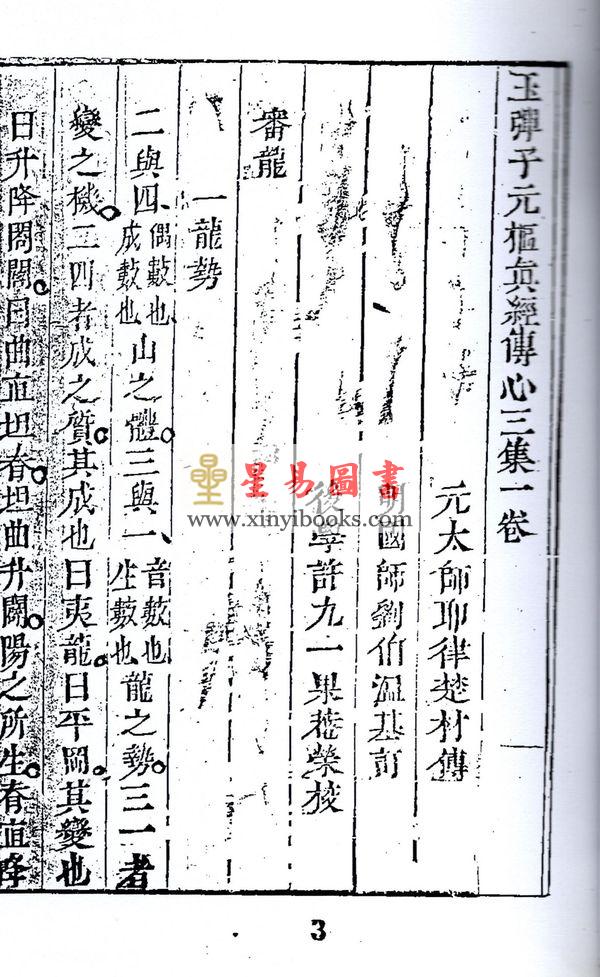 玉彈子元樞眞經傳心三集一卷
元太師耶律楚材傳
明國師劉伯溫基訂
後學許九一果菴榮校
審龍
一龍勢
二與四、偶數也、成數也、山之體。三與一、音數也、生數也、龍之勢。三一者
變之機。二四者成之質。其成也曰夷龍。曰平岡。其變也
曰升降闊闔。曰曲直坦。有坦曲升闢。陽之所生。有直降
星易圖書
www.xinyibooks.com
3